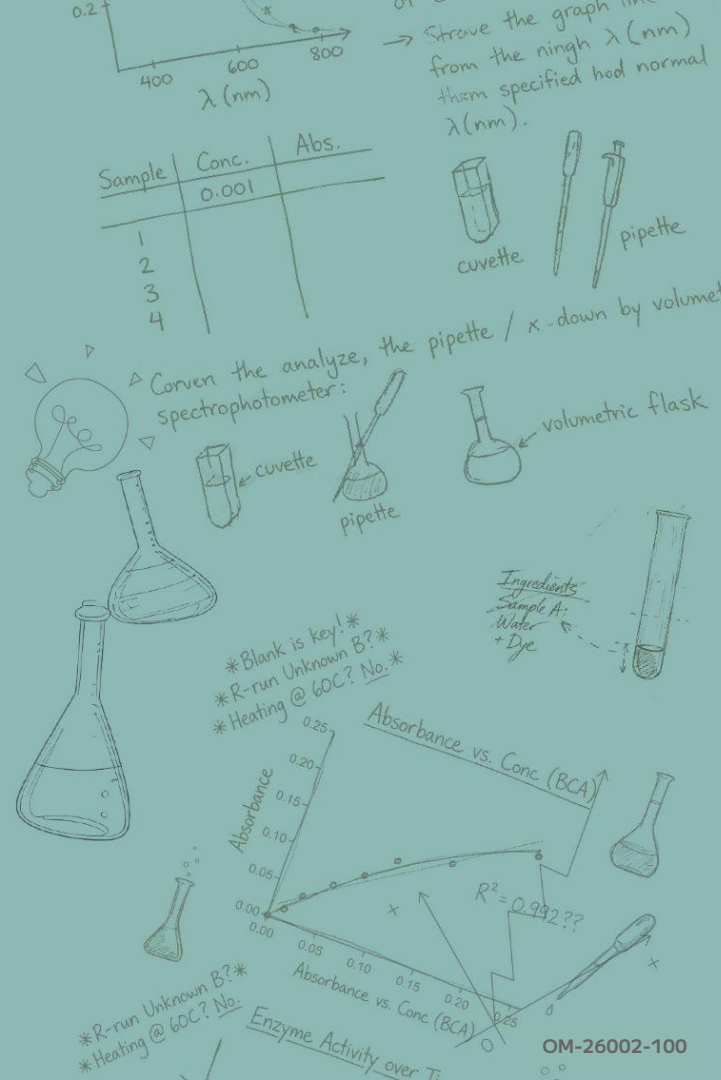 0.2
400 600 800
λ (nm)
of
→ Strave the graph
from the ningh λ (nm)
them specified hod normal
λ (nm).
Sample Conc. Abs.
0.001
1
2
3
4
cuvette
pipette
Corven the analyze, the pipette / x-down by volumet
spectrophotometer:
cuvette
pipette
volumetric flask
Ingredients
Sample A:
Water
+ Dye
*Blank is key!*
*R-run Unknown B?*
*Heating @ 60C? No.*
Absorbance vs. Conc (BCA)
Absorbance
0.25
0.20
0.15
0.10
0.05
0.00
0.00 0.05 0.10 0.15 0.20 0.25
R²=0.992??
x
x
Absorbance vs. Conc (BCA)
*R-run Unknown B?*
*Heating @ 60C? No.
Enzyme Activity over Ti
OM-26002-100